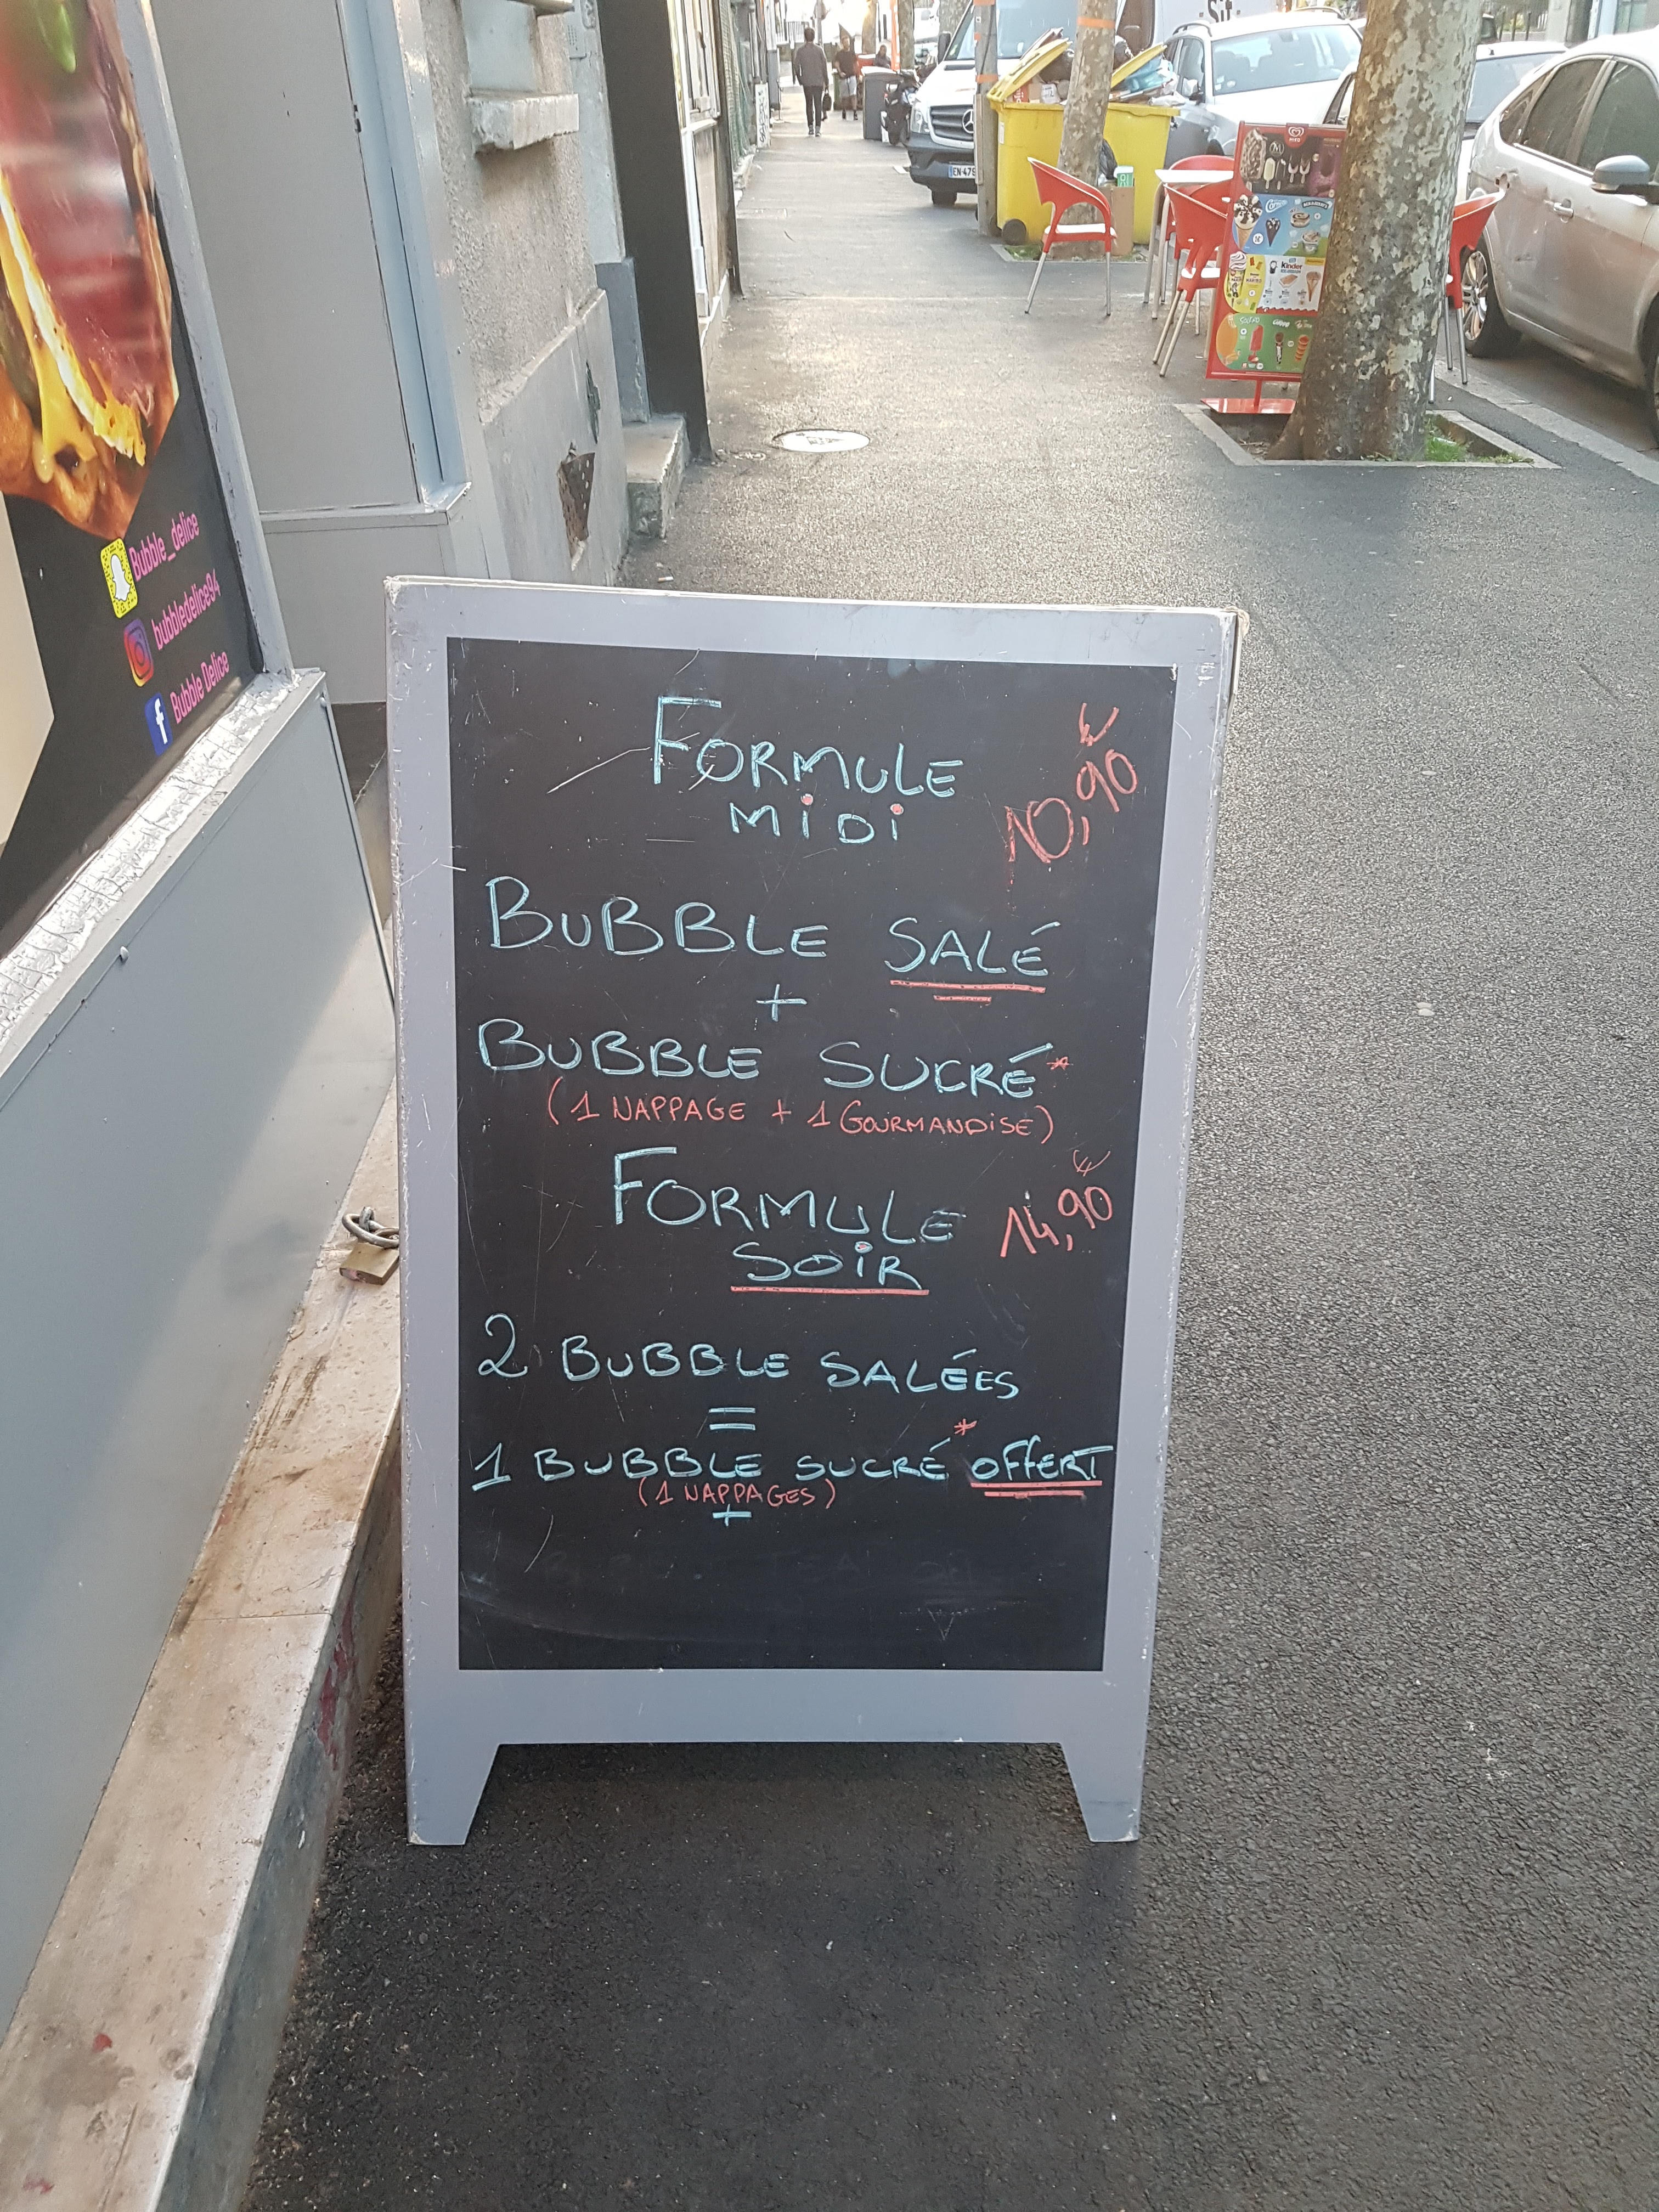 Bubble_delice
bubbledelice94
Bubble Delice
FORMULE
MiDi
10,90 €
BUBBLE SALÉ
+
BUBBLE SUCRÉ*
(1 NAPPAGE + 1 GOURMANDISE)
FORMULE
SOiR
14,90 €
2 BUBBLE SALÉES
=
1 BUBBLE SUCRÉ* OFFERT
(1 NAPPAGES)
+
Kinder